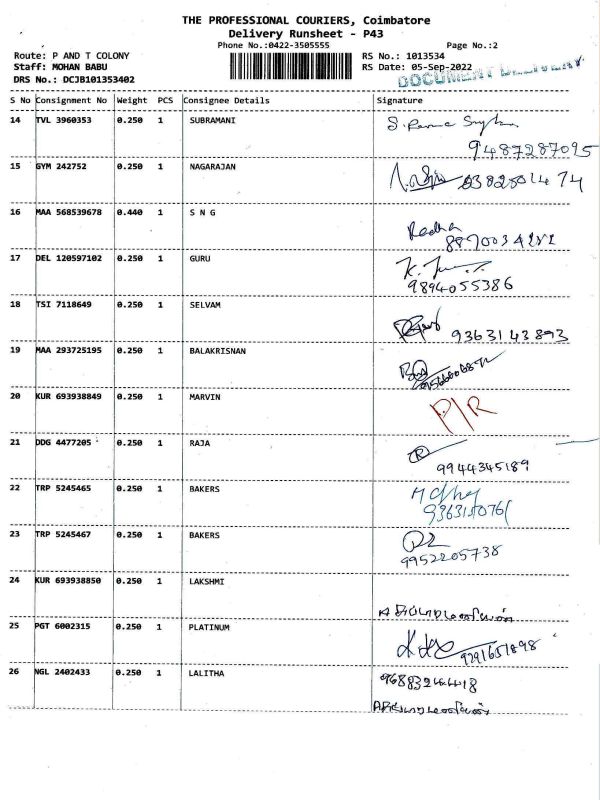 THE PROFESSIONAL COURIERS, Coimbatore
Delivery Runsheet - P43
Phone No.:0422-3505555
Page No.:2
Route: P AND T COLONY
RS No.: 1013534
Staff: MOHAN BABU
RS Date: 05-Sep-2022
DRS No.: DCJB101353402
DOCUMENT DELIVERY
S No Consignment No Weight PCS Consignee Details Signature
14 TVL 3960353 0.250 1 SUBRAMANI
9487287095
15 GYM 242752 0.250 1 NAGARAJAN
16 MAA 568539678 0.440 1 S N G
Radha
17 DEL 120597102 0.250 1 GURU
9894055386
18 TSI 7118649 0.250 1 SELVAM
9363143893
19 MAA 293725195 0.250 1 BALAKRISNAN
20 KUR 693938849 0.250 1 MARVIN
P/R
21 DDG 4477205 0.250 1 RAJA
9944345189
22 TRP 5245465 0.250 1 BAKERS
23 TRP 5245467 0.250 1 BAKERS
9952205738
24 KUR 693938850 0.250 1 LAKSHMI
25 PGT 6002315 0.250 1 PLATINUM
9291651898
26 NGL 2402433 0.250 1 LALITHA